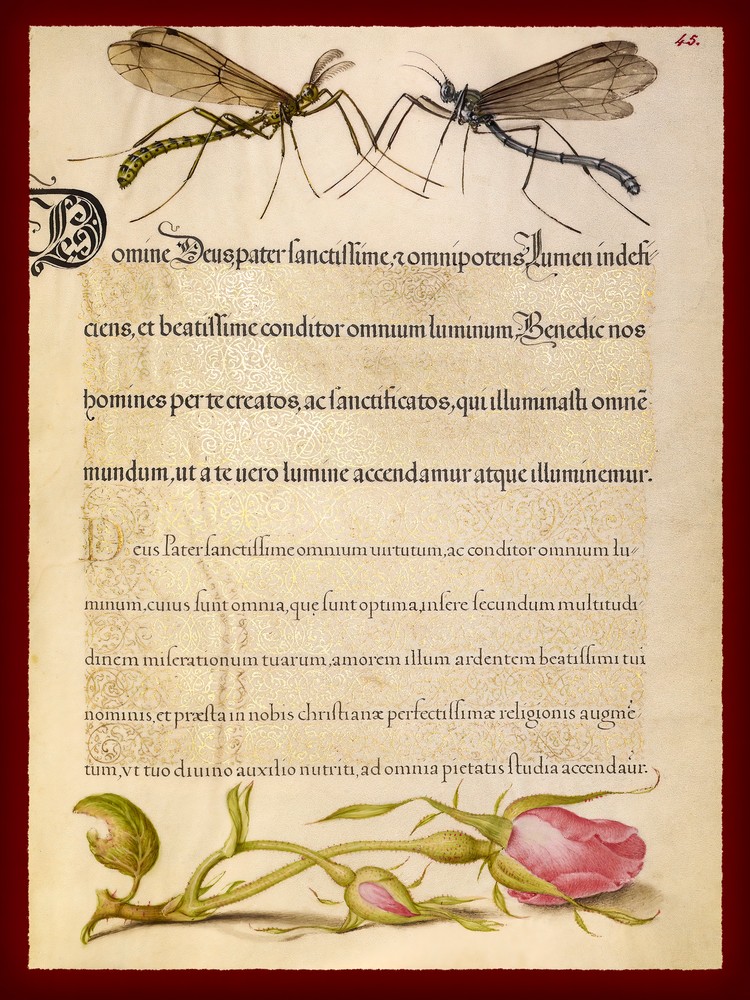 45.
Domine Deus pater ſanctiſſime, ⁊ omnipotens, Lumen indefi⸗
ciens, et beatiſſime conditor omnium luminum, Benedic nos
homines per te creatos, ac ſanctificatos, qui illuminaſti omnē
mundum, ut à te uero lumine accendamur atque illuminemur.
Deus Pater ſanctiſſime omnium uirtutum, ac conditor omnium lu⸗
minum. cuius ſunt omnia, quę ſunt optima, inſere ſecundum multitudi⸗
dinem miſerationum tuarum, amorem illum ardentem beatiſſimi tui
nominis, et præſta in nobis chriſtianæ perfectiſſimæ religionis augmē
tum, vt tuo diuino auxilio nutriti, ad omnia pietatis ſtudia accendāur.